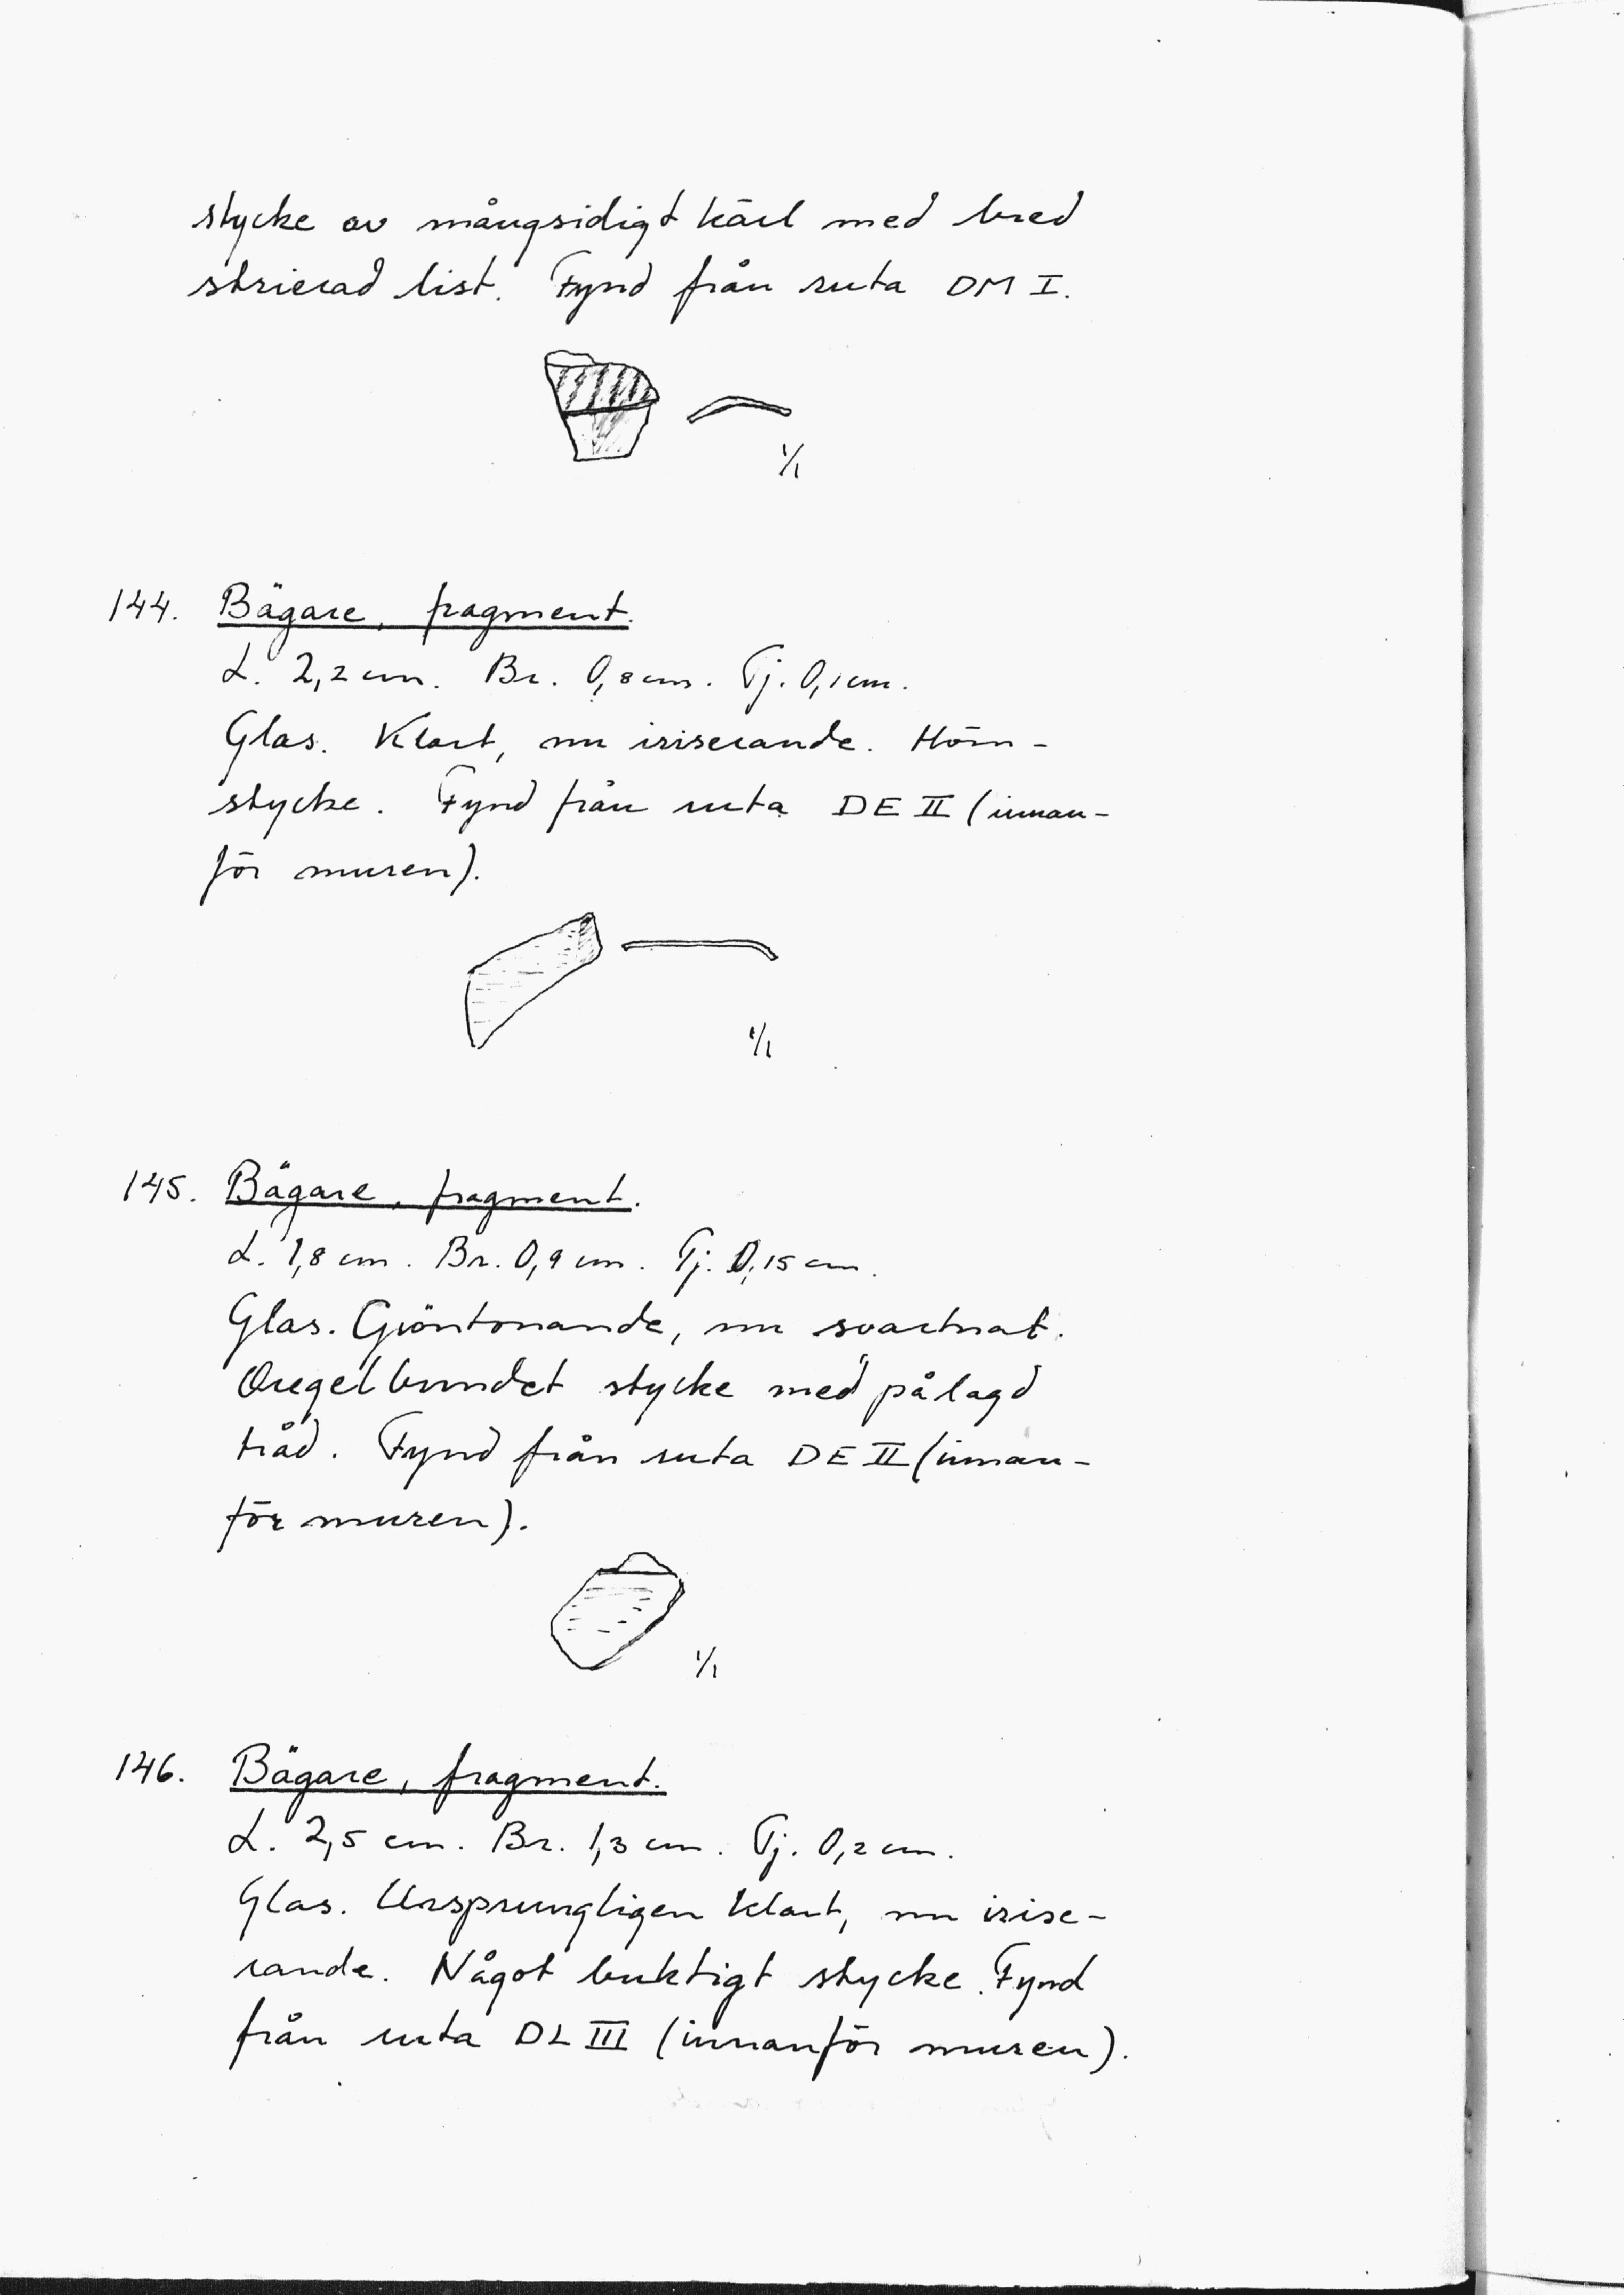 stycke av mångsidigt kärl med bred
strierad list. Fynd från ruta DM I.
1/1
144. Bägare, fragment.
L. 2,2 cm. Br. 0,8 cm. Tj. 0,1 cm.
Glas. Klart, nu iriserande. Hörn-
stycke. Fynd från ruta DE II (innan-
för muren).
1/1
145. Bägare, fragment.
L. 1,8 cm. Br. 0,9 cm. Tj. 0,15 cm.
Glas. Gröntonande, nu svartnat.
Oregelbundet stycke med pålagd
tråd. Fynd från ruta DE II (innan-
för muren).
1/1
146. Bägare, fragment.
L. 2,5 cm. Br. 1,3 cm. Tj. 0,2 cm.
Glas. Ursprungligen klart, nu irise-
rande. Något buktigt stycke. Fynd
från ruta DL III (innanför muren).